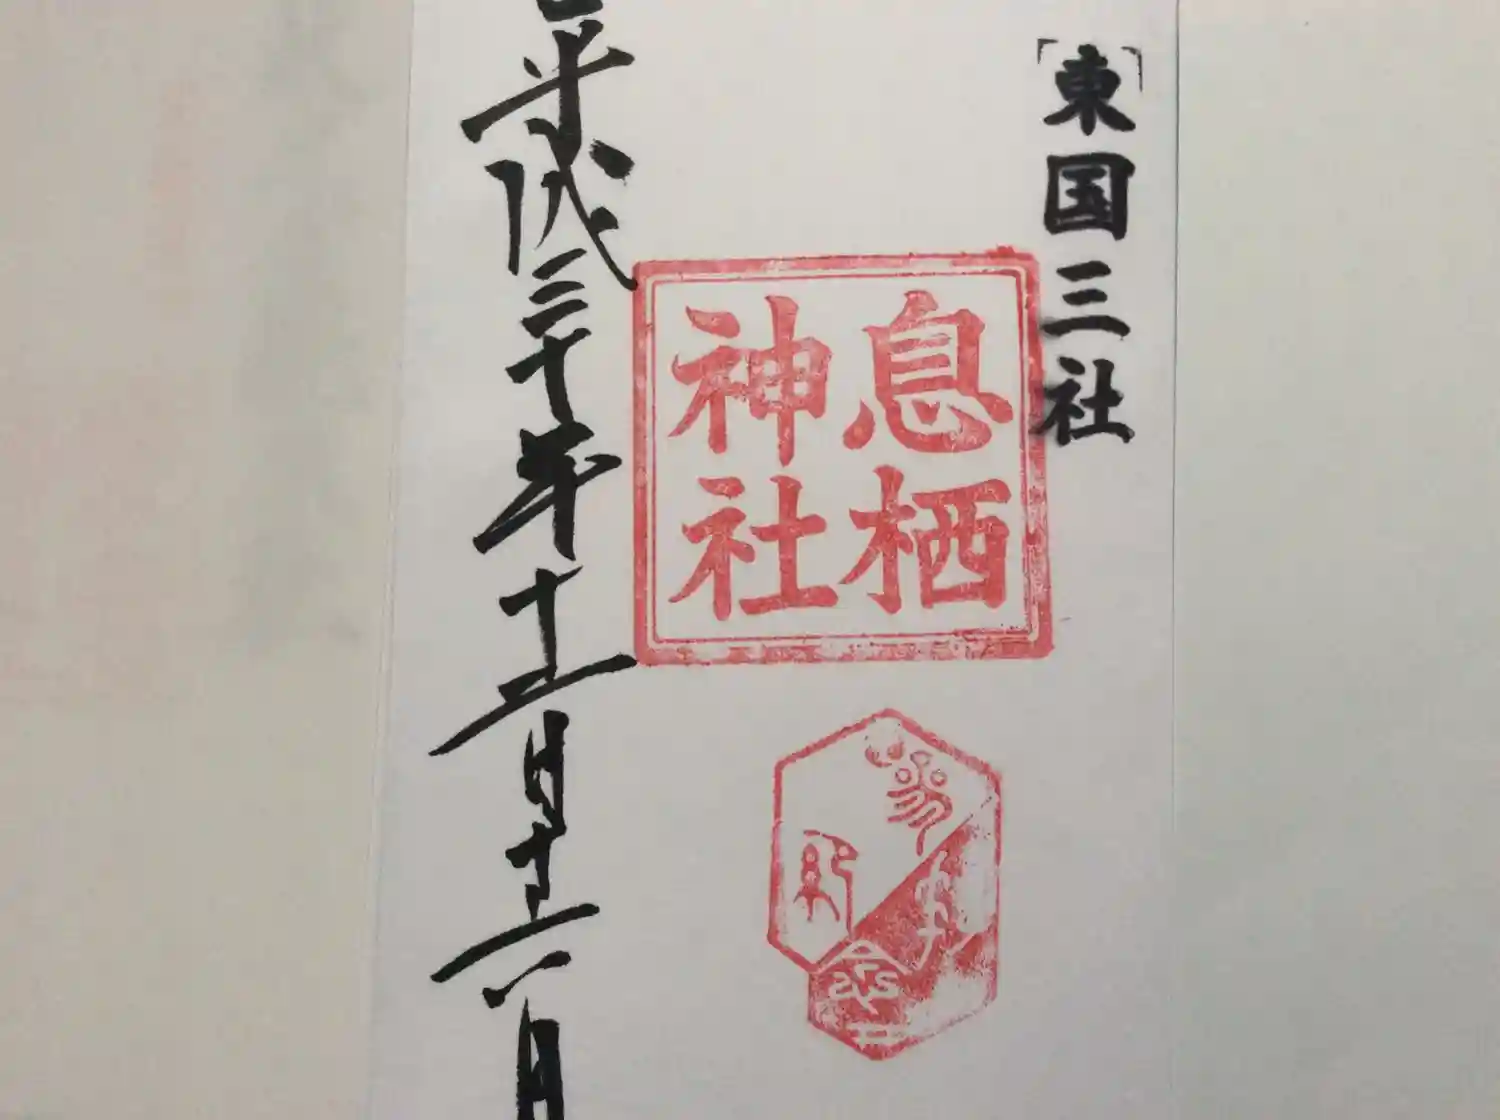 東国三社
息栖
神社
平成三十年十二月十六日